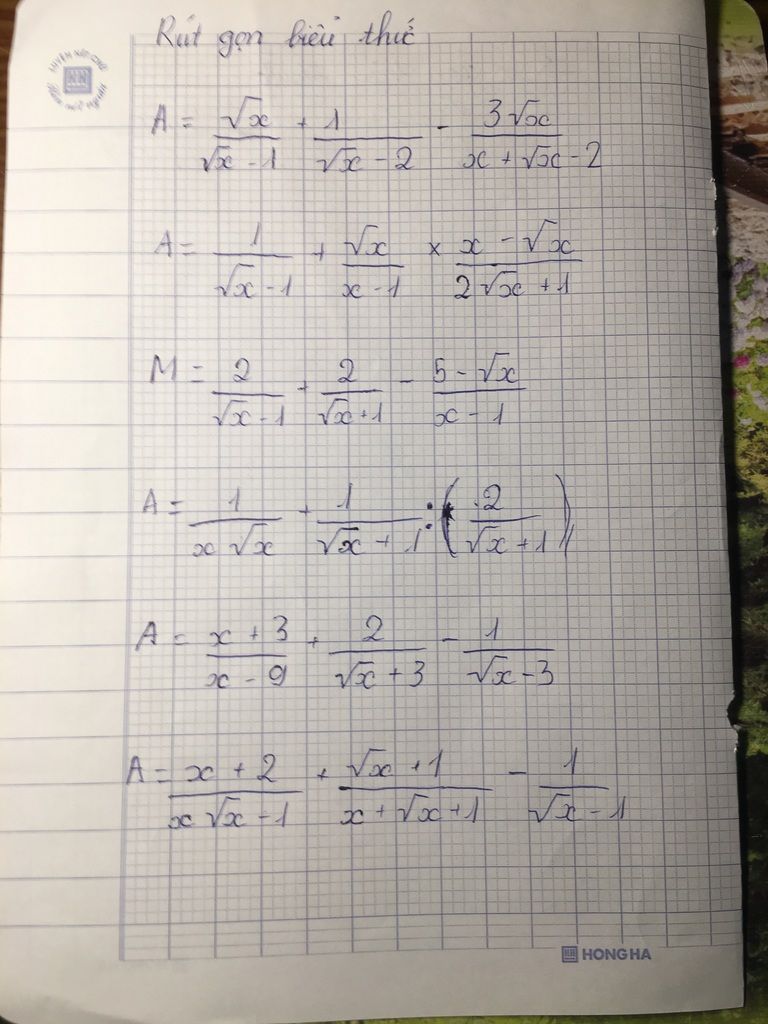 Rút gọn biểu thức
A = √x/(√x - 1) + 1/(√x - 2) - 3√x/(x + √x - 2)
A = 1/(√x - 1) + √x/(x - 1) × (x - √x)/(2√x + 1)
M = 2/(√x - 1) + 2/(√x + 1) - (5 - √x)/(x - 1)
A = 1/(x√x) + 1/(√x + 1) : (2/(√x + 1))
A = (x + 3)/(x - 9) + 2/(√x + 3) - 1/(√x - 3)
A = (x + 2)/(x√x - 1) + (√x + 1)/(x + √x + 1) - 1/(√x - 1)
HONG HA